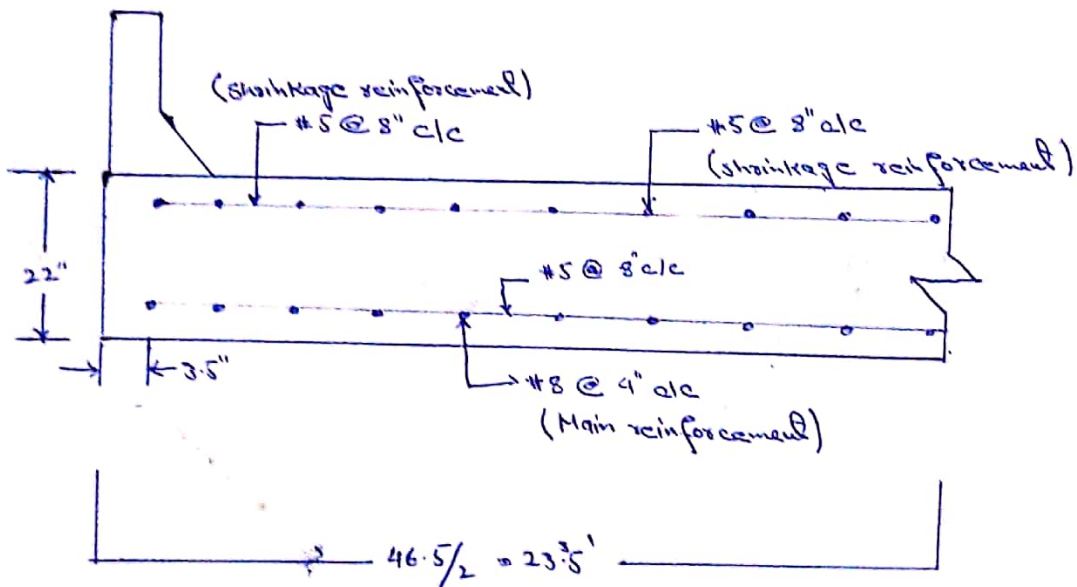 (shrinkage reinforcement)
#5 @ 8" c/c
#5 @ 8" c/c
(shrinkage reinforcement)
22"
#5 @ 8" c/c
3.5"
#8 @ 4" c/c
(Main reinforcement)
46.5/2 = 23.5'